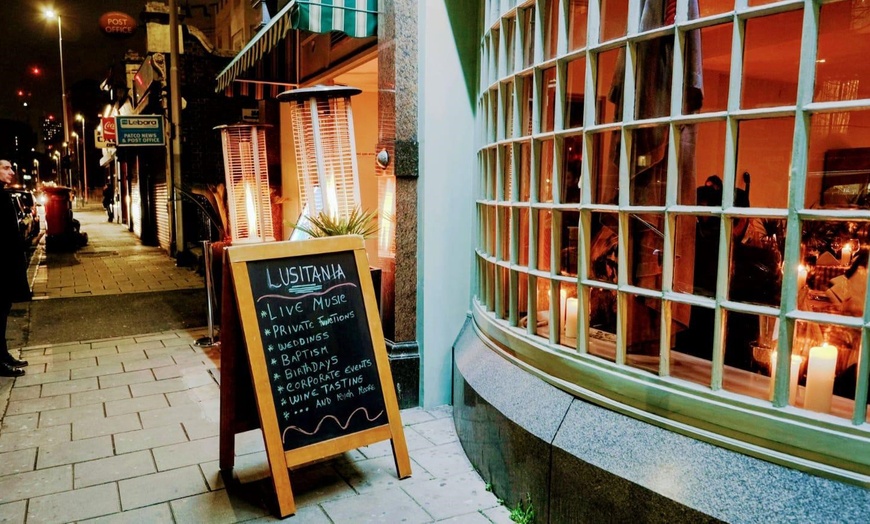 POST
OFFICE
Lebara
PATCO NEWS
& POST OFFICE
LUSITANIA
* LIVE MUSIC
* PRIVATE FUNCTIONS
* WEDDINGS
* BAPTISM
* BIRTHDAYS
* CORPORATE EVENTS
* WINE TASTING
* ... AND MUCH MORE